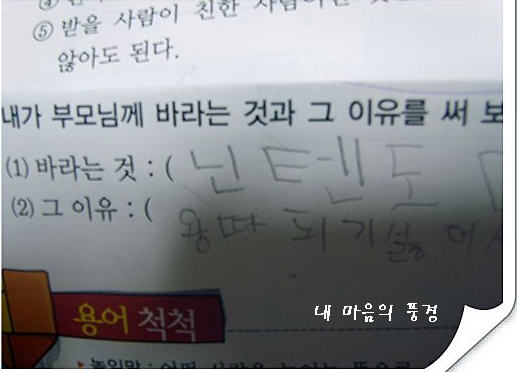 ⑤ 받을 사람이 친한 사람이
않아도 된다.
내가 부모님께 바라는 것과 그 이유를 써 보
(1) 바라는 것 : ( 닌텐도
(2) 그 이유 : ( 왕따 되기 싫어서
용어 척척
내 마음의 풍경
▸높임말 : 어떤 사람을 높이는 뜻으로